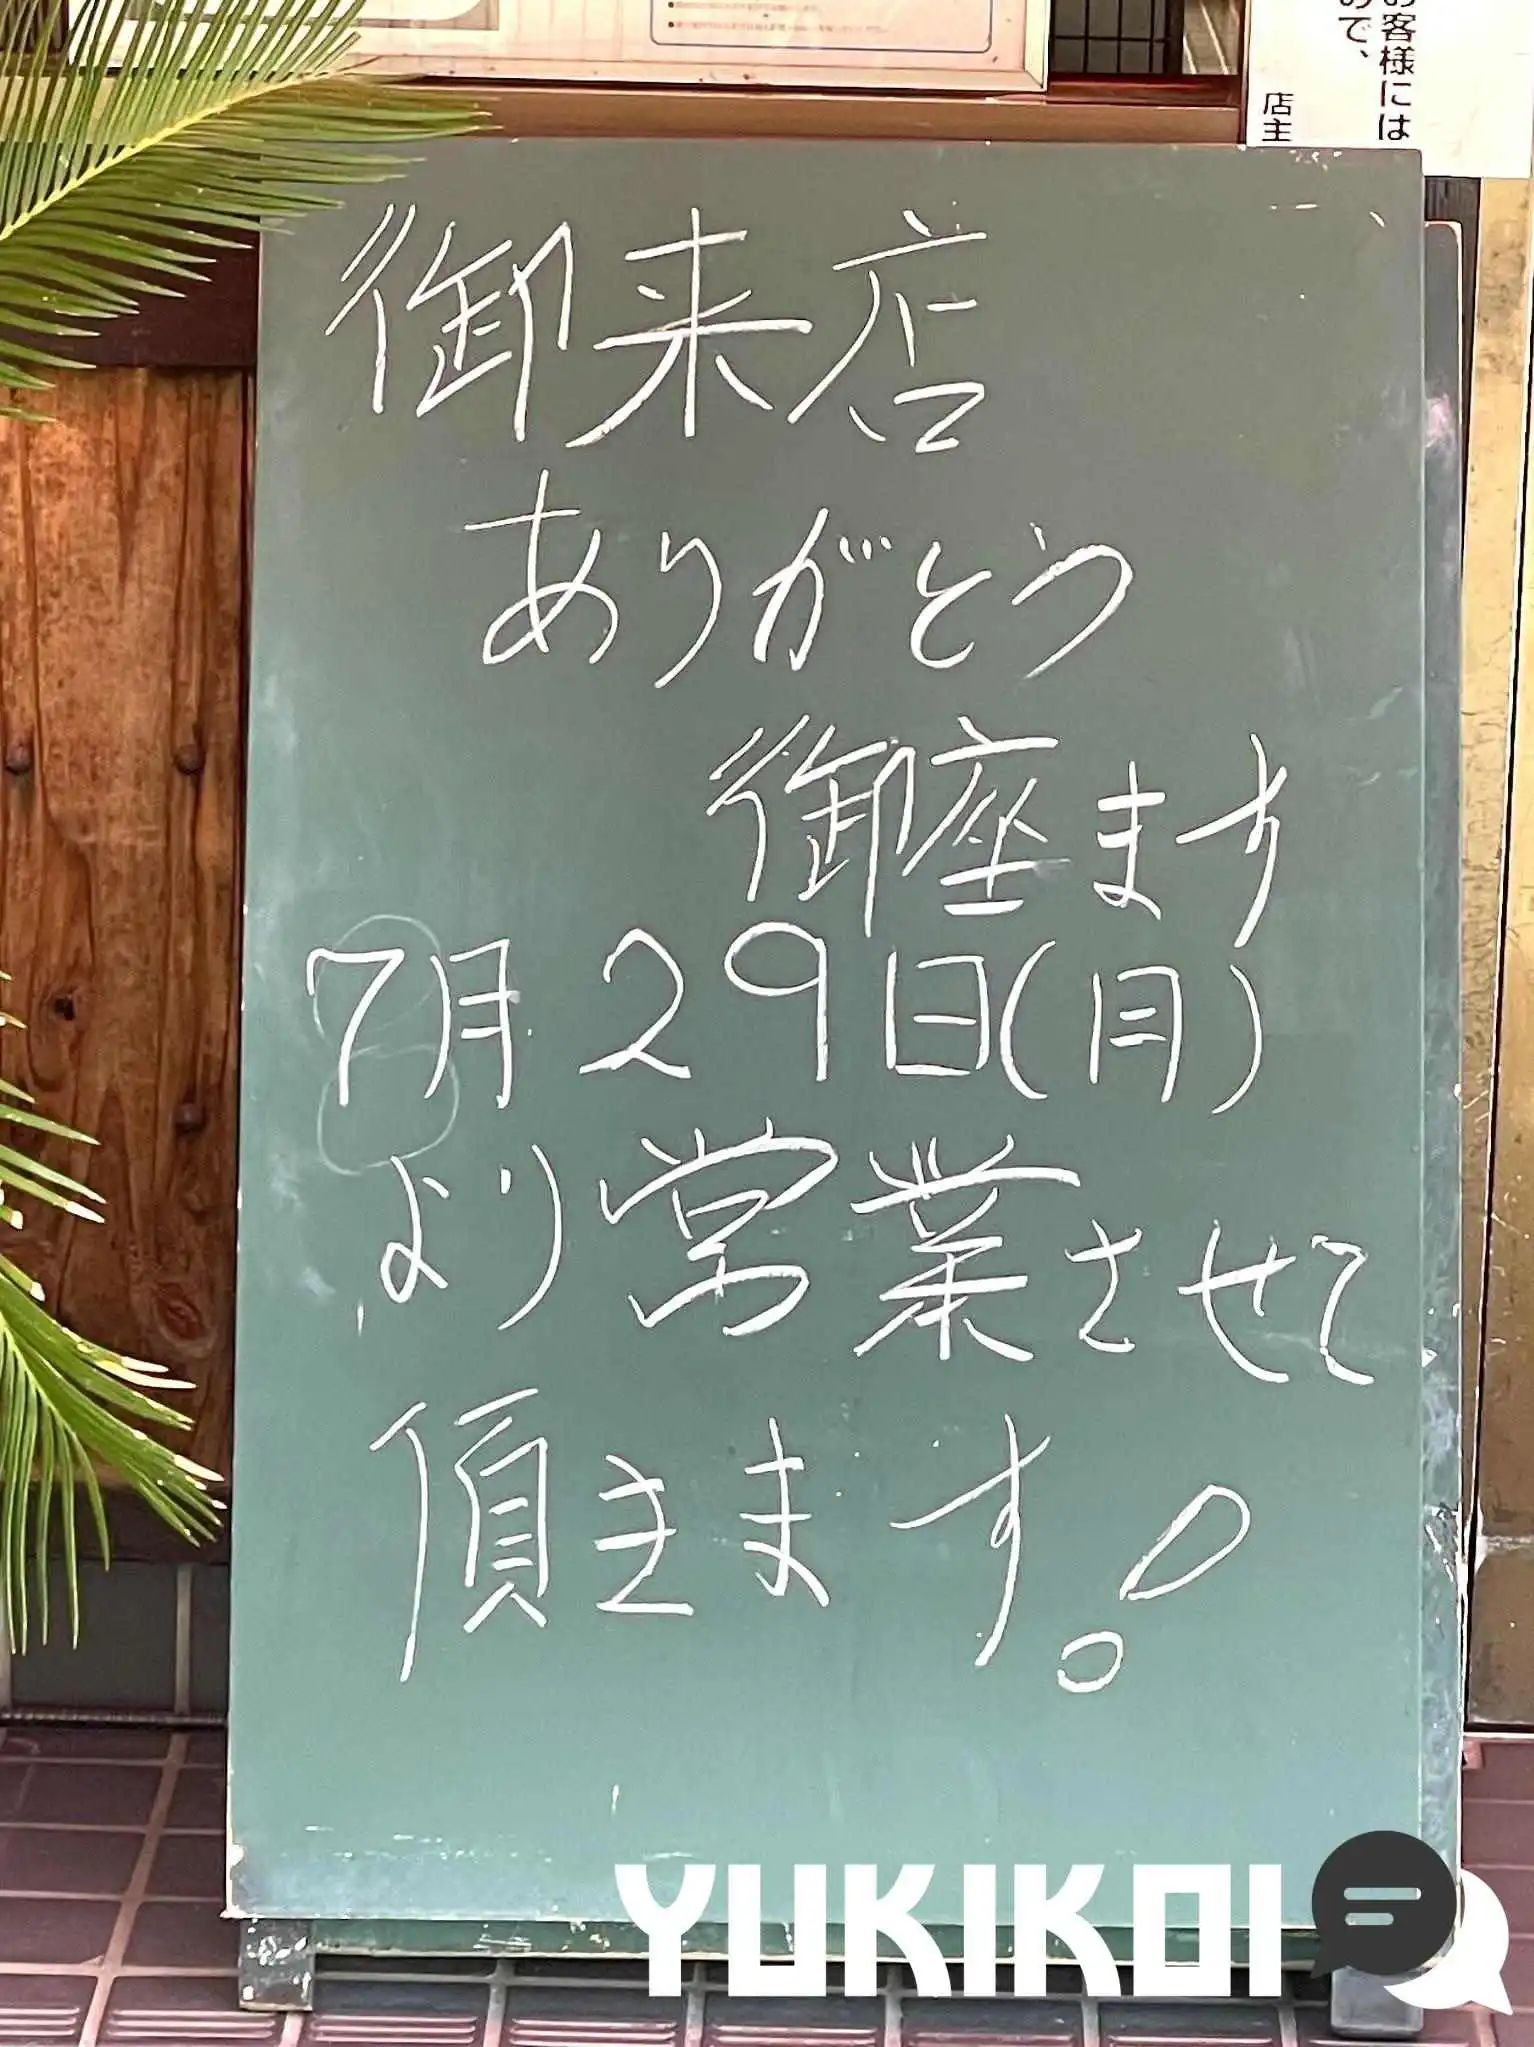 お客様には
ので、
店主
御来店
ありがとう
御座ます
7月29日(月)
より営業させて
頂きます!
YUKIKOI